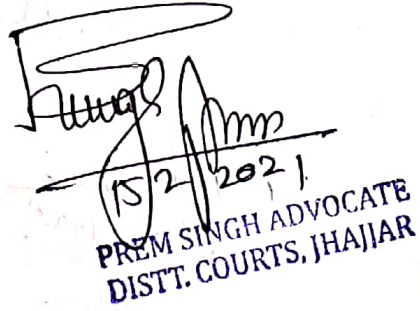 15 2 2021
PREM SINGH ADVOCATE
DISTT. COURTS, JHAJJAR